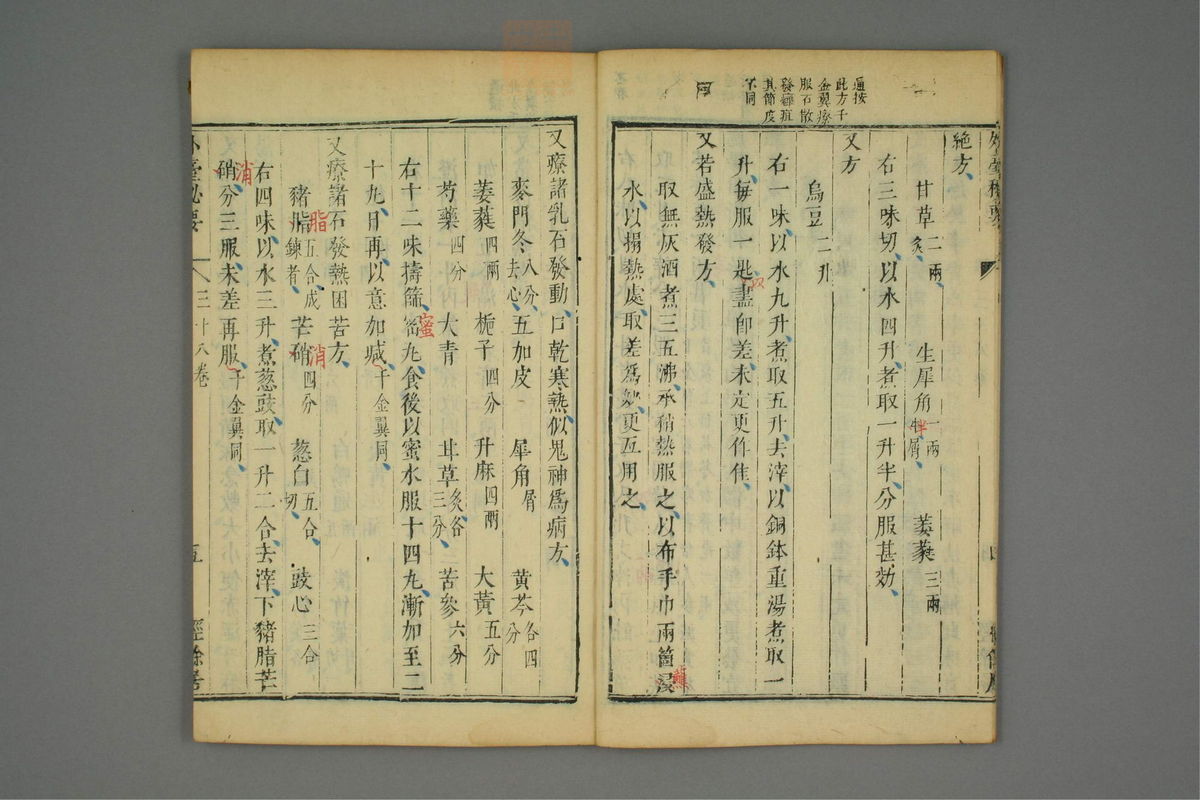 外臺秘要
絶方
甘草二兩炙 生犀角一兩屑 萎蕤三兩
右三味切以水四升煮取一升半分服甚効
又方
烏豆二升
右一味以水九升煮取五升去滓以銅鉢重湯煮取一
升每服一匙盡卽差未定更作佳
又若盛熱發方
取無灰酒煮三五沸承稍熱服之以布手巾兩箇浸
水以搨熱處取差爲妙更互用之
通按
此方千
金翼療
服石散
發癰疽
其節度
不同
又療諸乳石發動口乾寒熱似鬼神爲病方
麥門冬八分去心 五加皮 犀角屑 黃芩各四分
萎蕤四兩 梔子四分 升麻四兩 大黃五分
芍藥四分 大青 甘草炙各三分 苦參六分
右十二味擣篩密丸食後以蜜水服十四丸漸加至二
蜜
十丸日再以意加減千金翼同
又療諸石發熱困苦方
豬脂五合成鍊者 芒硝四分 葱白五合切 豉心三合
脂
消
右四味以水三升煮葱豉取一升二合去滓下豬脂芒
硝分三服未差再服千金翼同
消
外臺秘要 三十八卷 五 經餘居